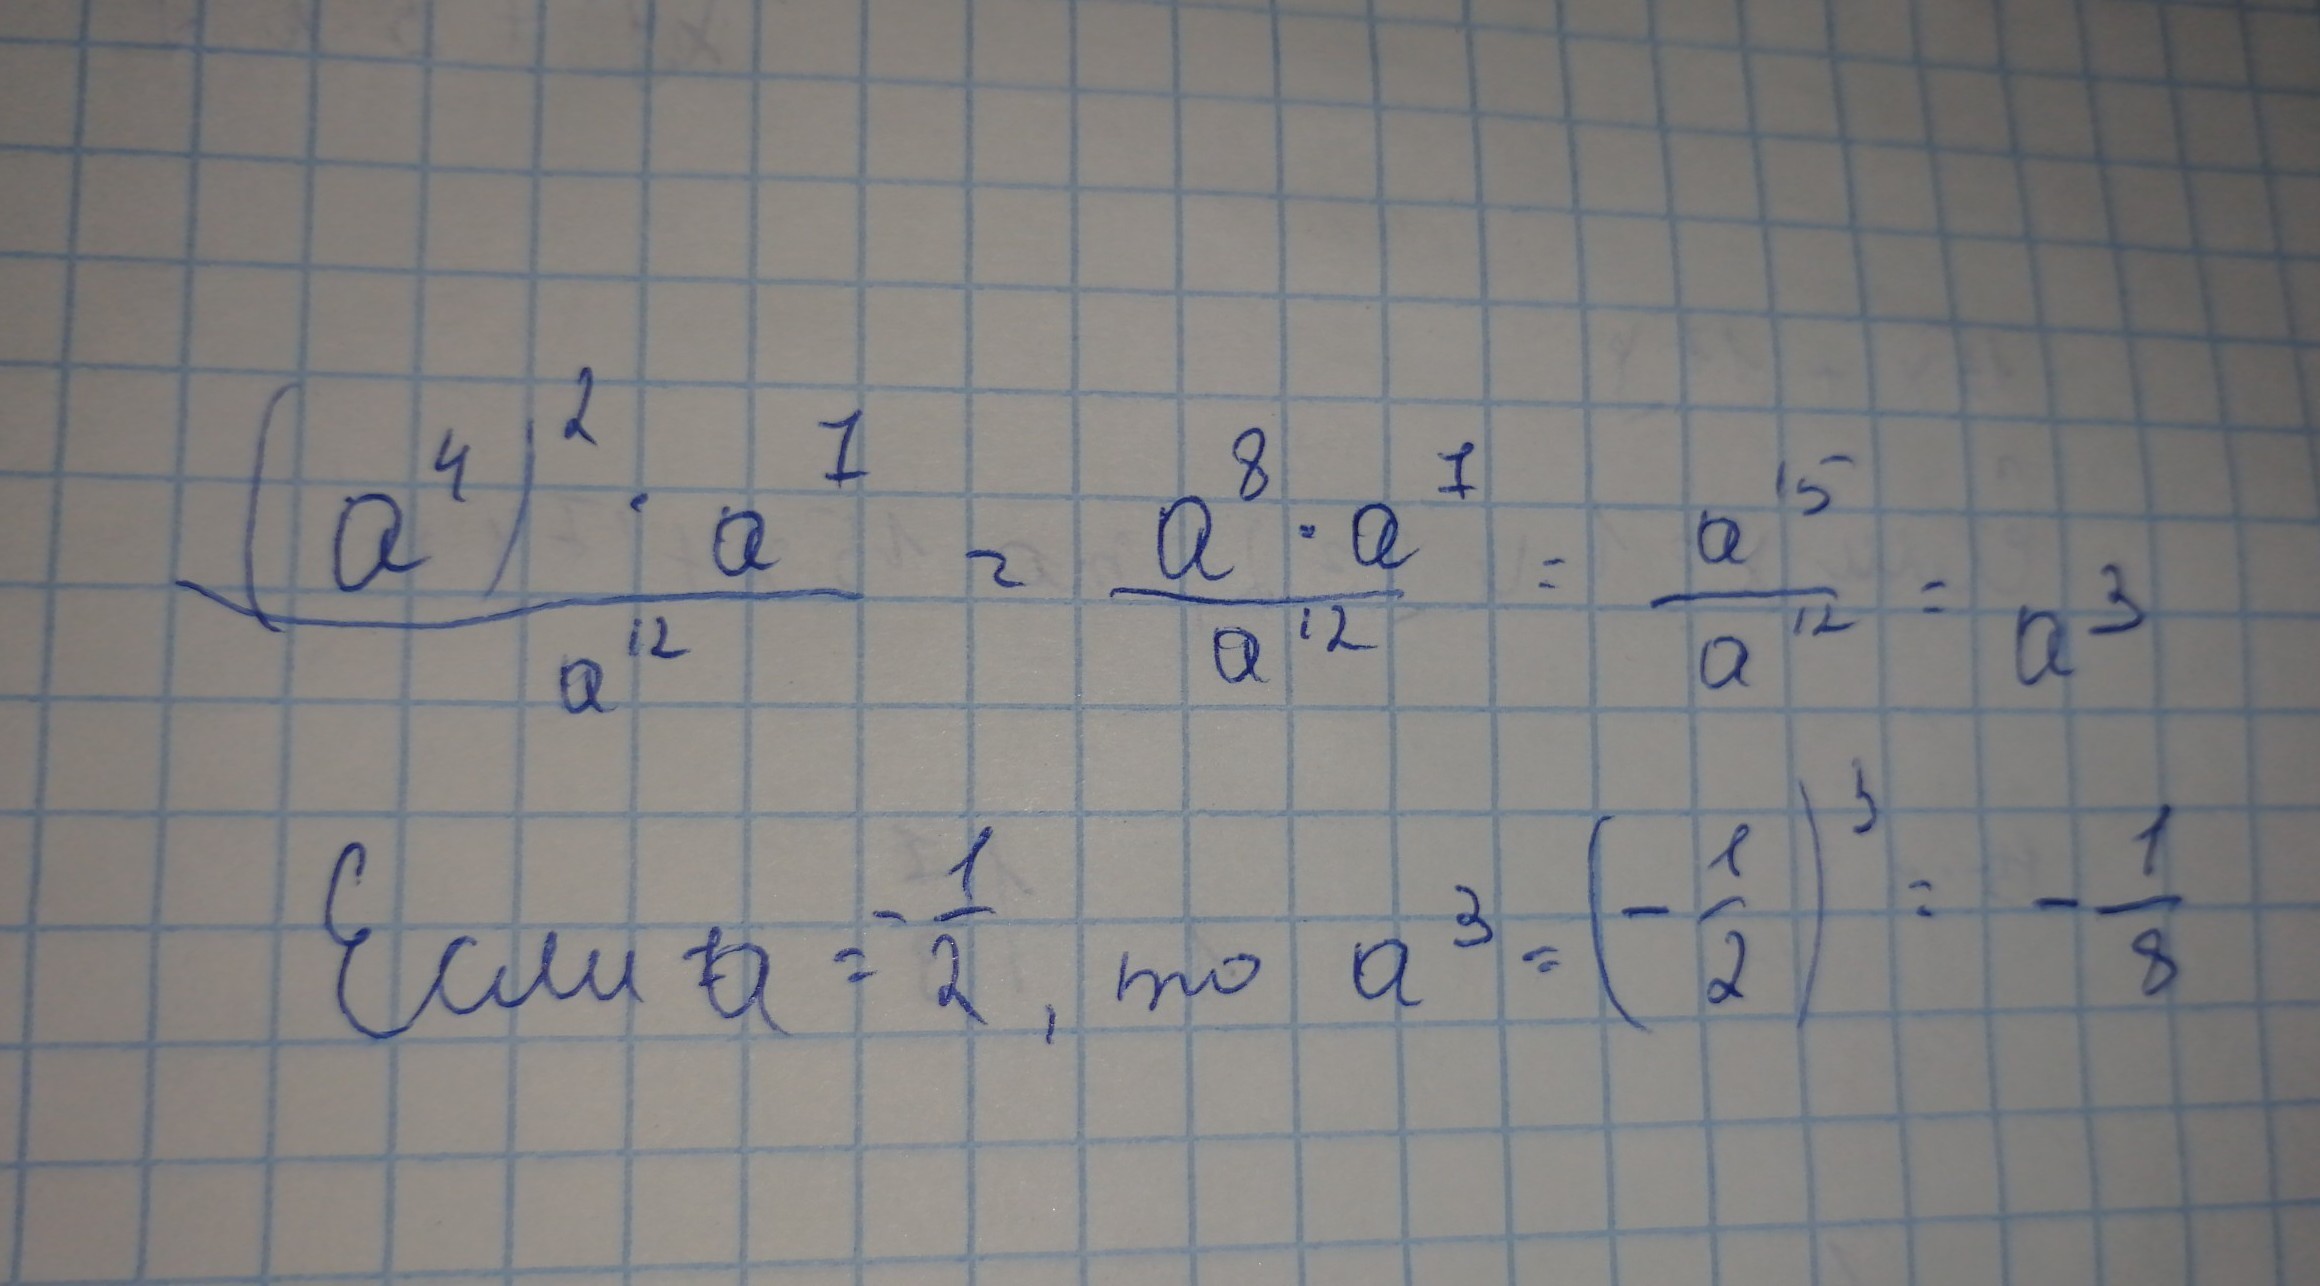 (a⁴)² · a⁷ / a¹² = a⁸ · a⁷ / a¹² = a¹⁵ / a¹² = a³
Если a = -1/2, то a³ = (-1/2)³ = -1/8